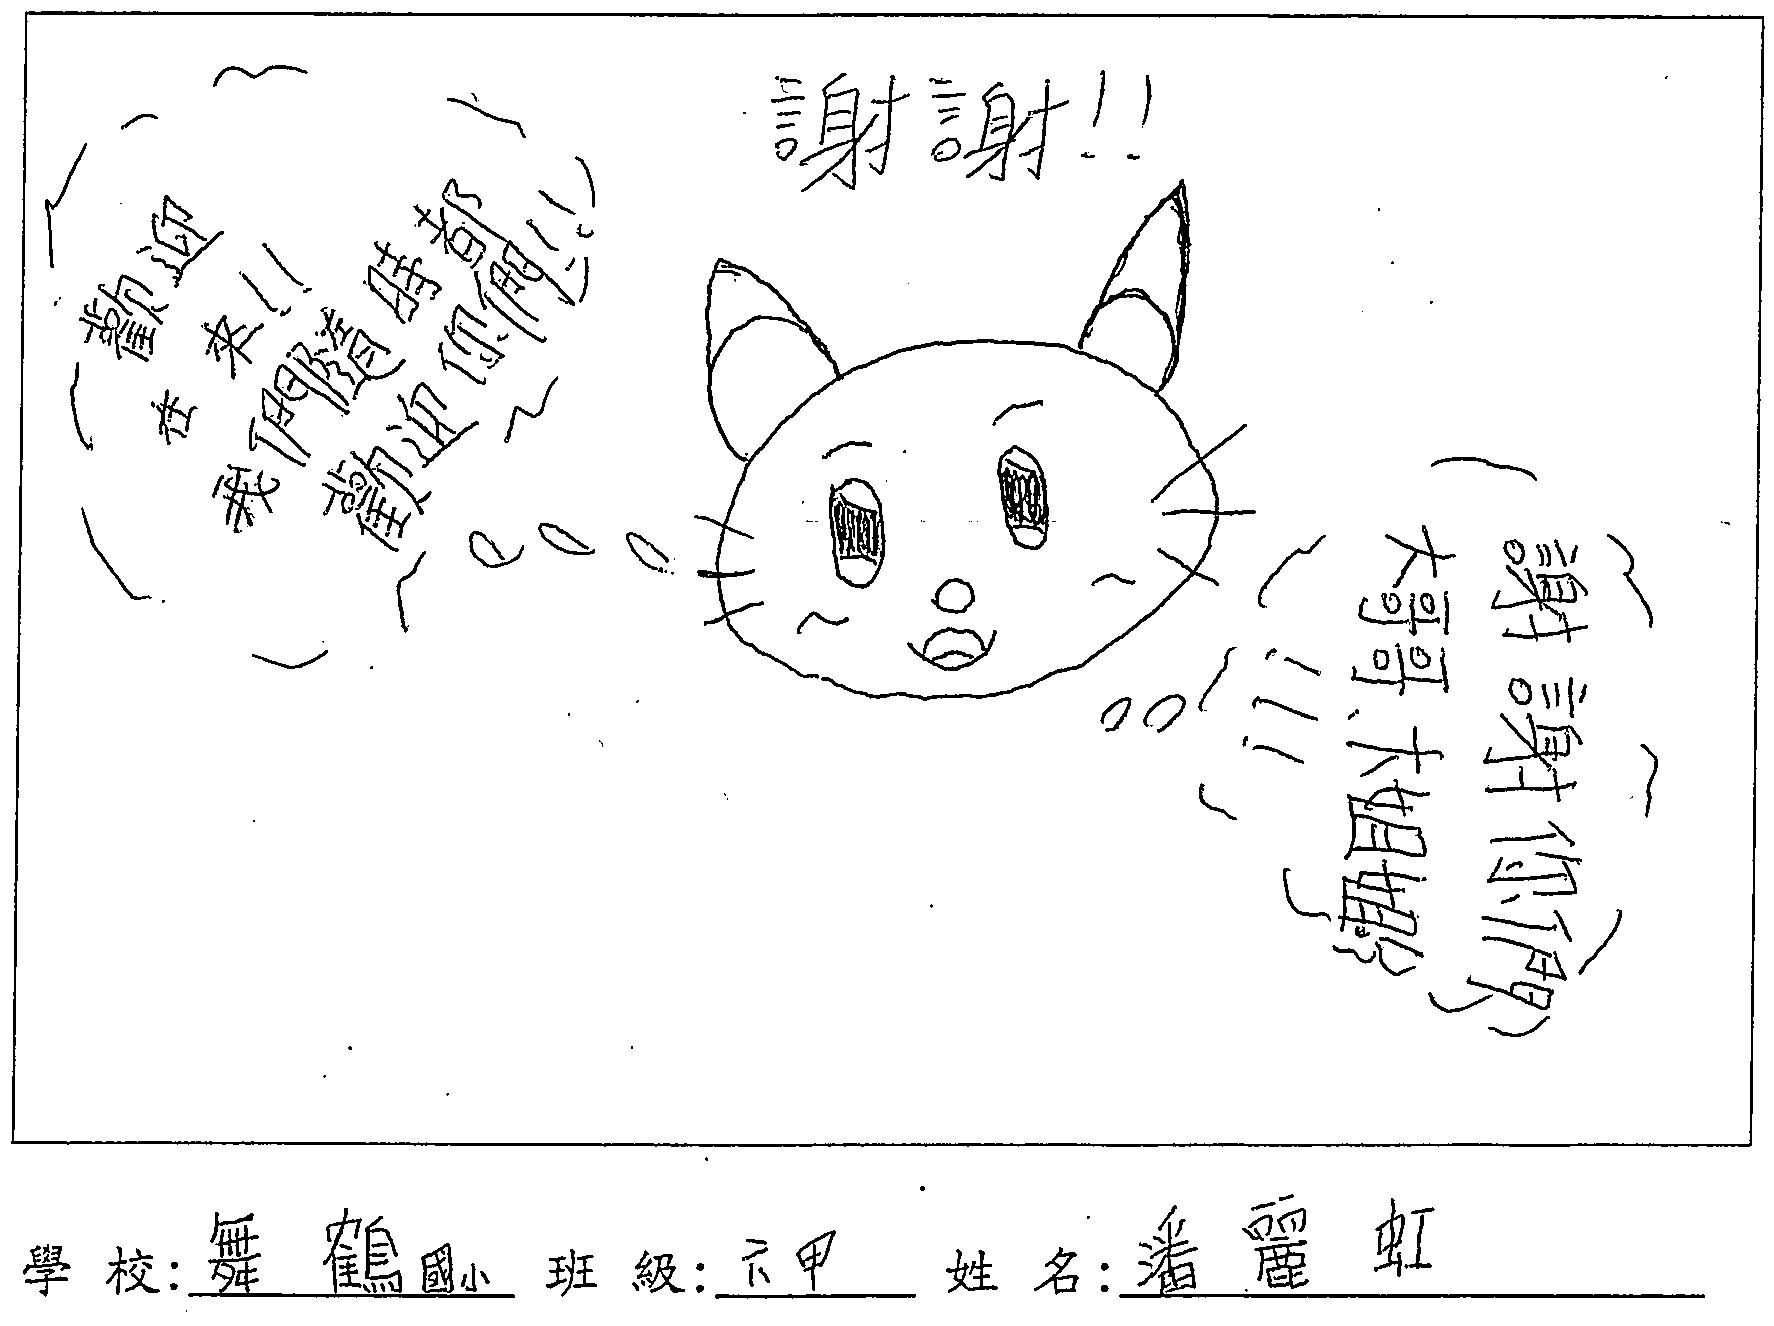 謝謝!!
歡迎
在來!!
我們隨時都
歡迎你們!!
謝謝你們
大哥哥、大姐姐
!!!
學校:舞鶴國小 班級:六甲 姓名:潘麗虹